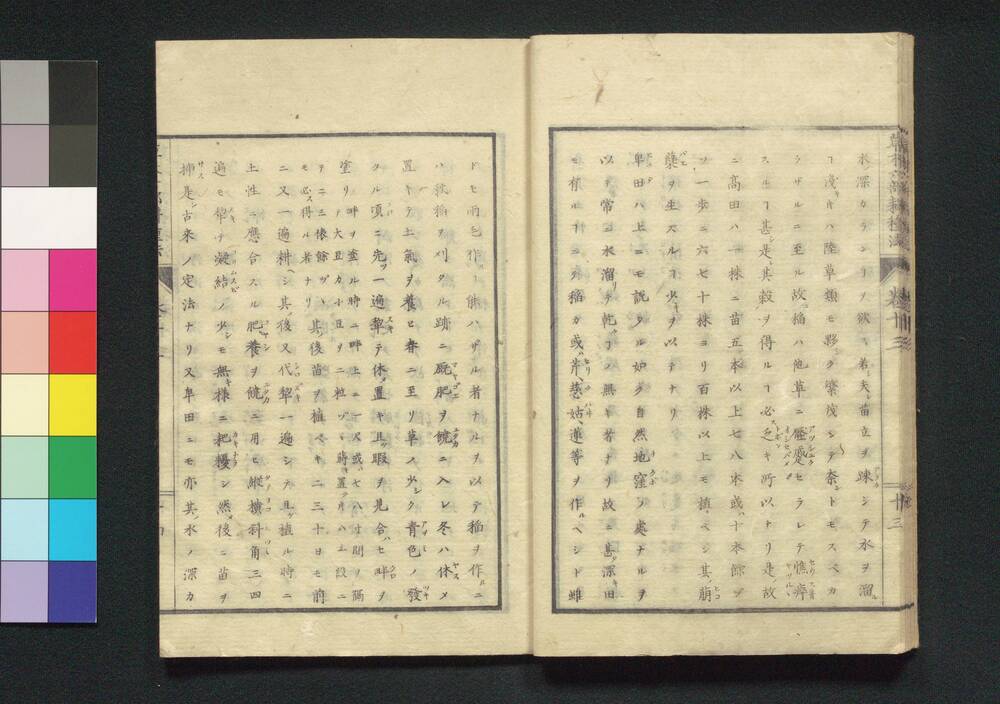 水深カランコヲ欲ス若夫苗立ヲ疎シテ水ヲ溜ル
コ淺キハ陸草類モ夥ク繁茂シテ奈トモスベカ
ラザルニ至ル故ニ稲ハ他草ニ壓蹙セラレテ憔瘁
スルコ甚是其穀ヲ得ルコ必乏キ所以ナリ是故
ニ高田ハ一株ニ苗五本以上七八本或ハ十本餘ヅ
ツ一歩ニ六七十株ヨリ百株以上モ植ベシ其萠
蘖ヲ生スルコ少キヲ以テナリ
皐田ハ上ニモ説タル如ク自然地窪ノ處ナルヲ
以テ常ニ水溜リテ乾コノ無キ者ナリ故ニ甚深キ田
モ有ルナニシテ稲カ或ハ芹慈姑蓮等ヲ作ルベシト雖
ドモ両毛作ハ能ハザル者ナルヲ以テ稲ヲ作ルニ
ハ秋稲ヲ刈タル蹟ニ厩肥ヲ饒ニ入レ冬ハ休メ
置キテ土氣ヲ養ヒ春ニ至リ草ノ少シク青色ノ發
タル頃ニ先ツ一遍犂テ休メ置キ且ツ暇ヲ見合セ畔ヲ
塗リ
畔ヲ塗ル時ニ畔上ニ一尺或ハ七八寸間ヲ隔テ大豆カ小豆ヲ二粒ヅヽ蒔置クハ土段ニ
ヲ二三俵餘ヅヽモ必ス得ル者ナリ
其後苗ヲ植ベキ二三十日モ前
ニ又一遍耕ヘシ其後又代犂一遍シテ且植ル時ニ
土性ニ應合スル肥養ヲ饒ニ用ヒ縱横斜角三四
遍モ犂キ凝結ノ少シモ無キ様ニ耙擾シ然後ニ苗ヲ
挿ス是古来ノ定法ナリ又皐田ニモ亦其水ノ深カ
巻十三
十三